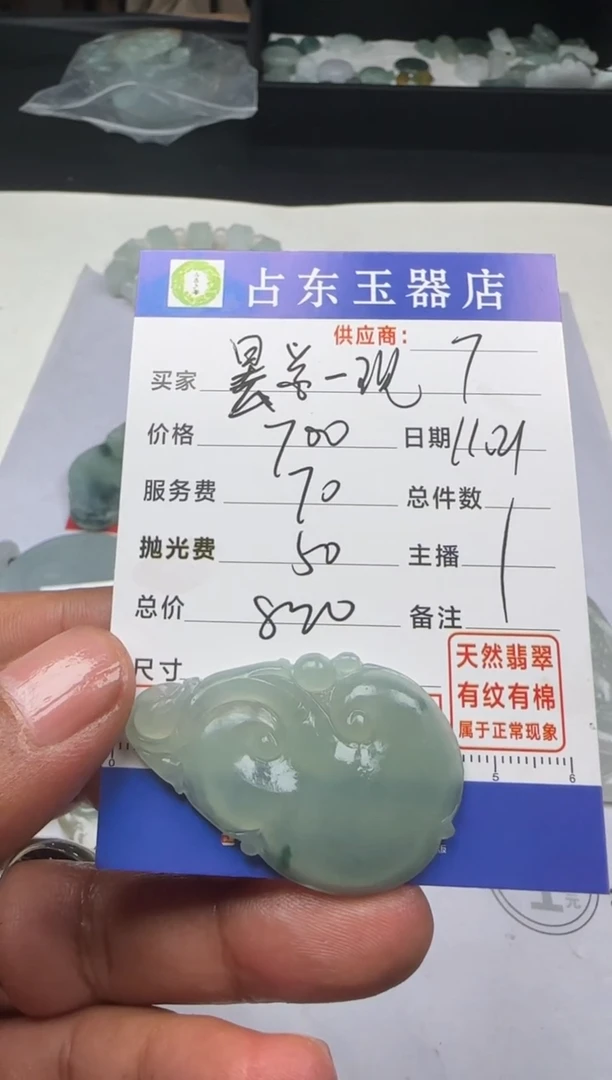 占东玉器店
供应商: 7
买家 一现
价格 700 日期 11.21
服务费 70 总件数 1
抛光费 50 主播
总价 820 备注
尺寸
天然翡翠
有纹有棉
属于正常现象
0 5 6
元